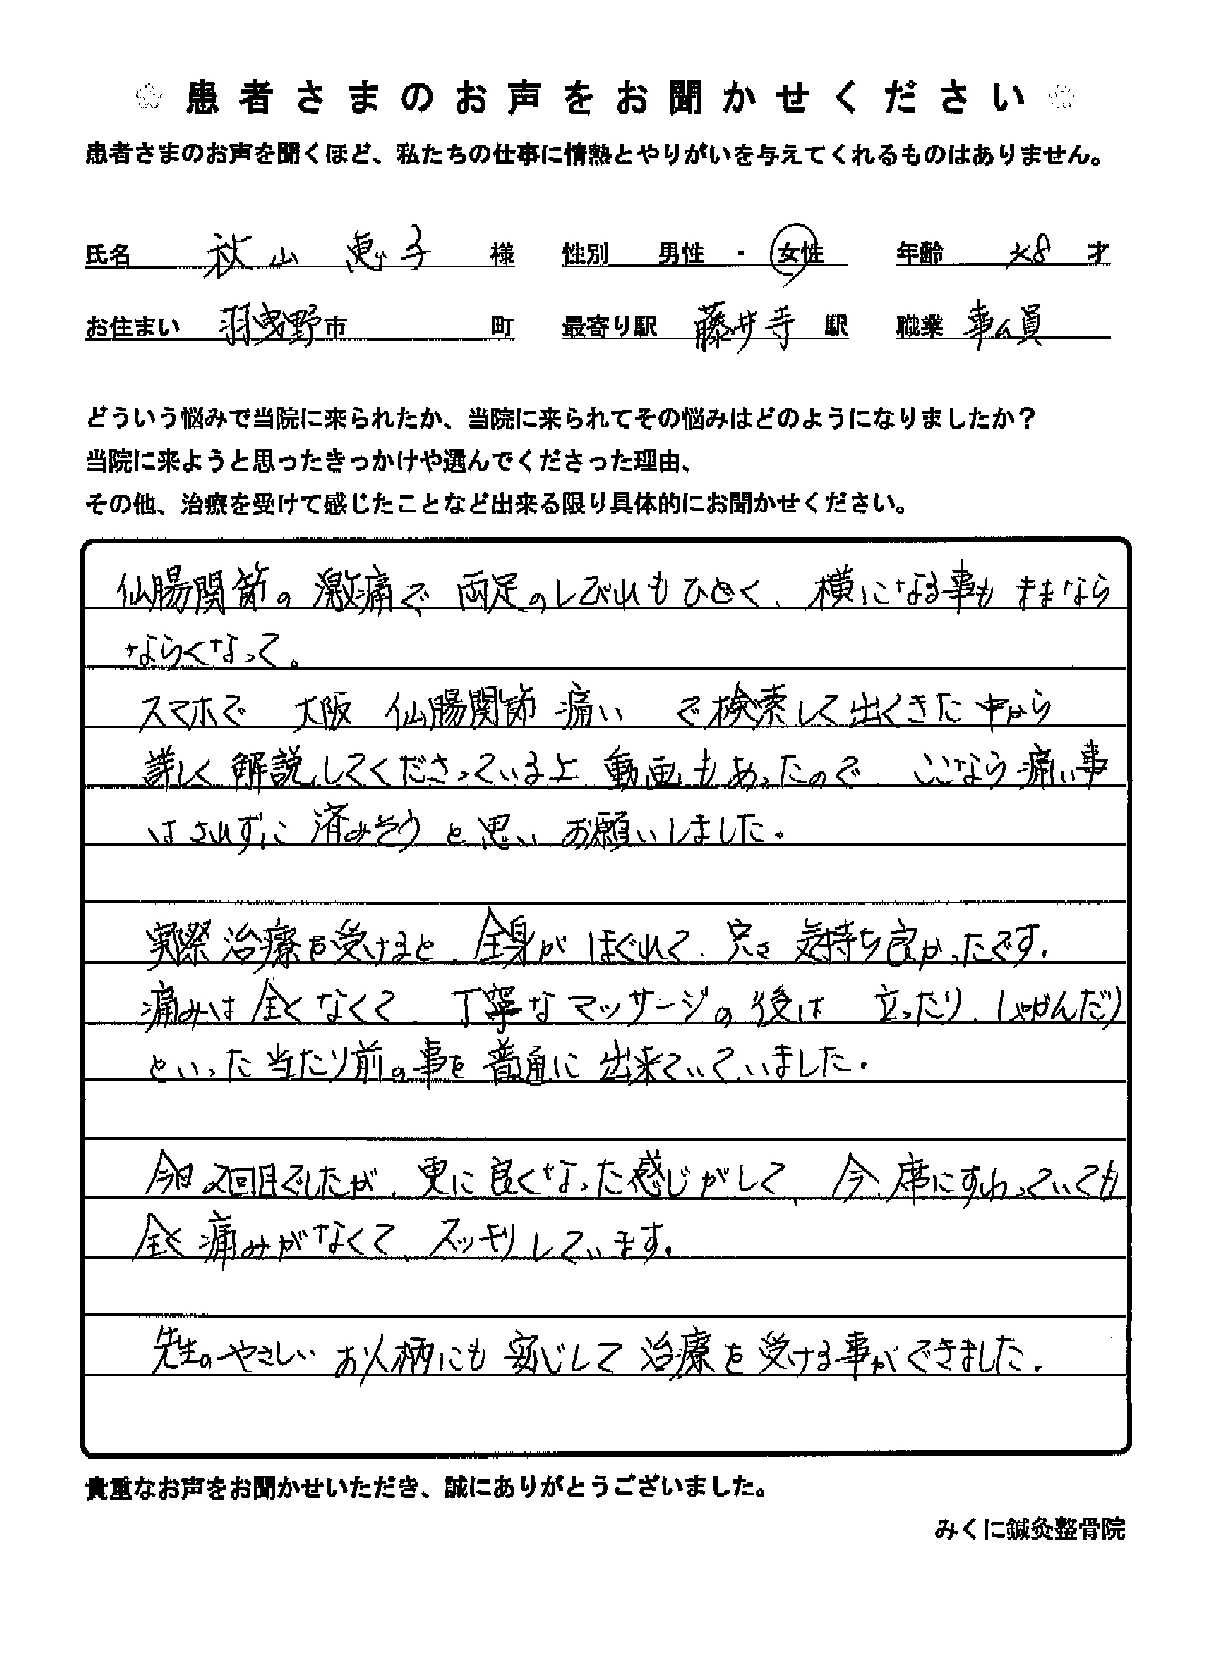 ☆ 患者さまのお声をお聞かせください ☆
患者さまのお声を聞くほど、私たちの仕事に情熱とやりがいを与えてくれるものはありません。
氏名 秋山 恵子 様 性別 男性 ・ 女性 年齢 才
お住まい 羽曳野市 町 最寄り駅 藤井寺 駅 職業 事ム員
どういう悩みで当院に来られたか、当院に来られてその悩みはどのようになりましたか？
当院に来ようと思ったきっかけや選んでくださった理由、
その他、治療を受けて感じたことなど出来る限り具体的にお聞かせください。
仙腸関節の激痛で 両足のしびれもひどく、横になる事もままなら
ならくなって。
スマホで 大阪 仙腸関節 痛い で検索して出くきた中から
詳しく解説してくださっている上、動画もあったので、ここなら痛い事
はされずに済みそうと思いお願いしました。
実際治療を受けると、全身がほぐれて、 気持ち良かったです。
痛みは全くなくて、丁寧なマッサージの後は 立ったり、しゃがんだり
といった当たり前の事を普通に出来ていていました。
今日2回目でしたが、更に良くなった感じがして、今、席にすわっていても
全く痛みがなくて、スッキリしています。
先生のやさしいお人柄にも安心して治療を受ける事ができました。
貴重なお声をお聞かせいただき、誠にありがとうございました。
みくに鍼灸整骨院